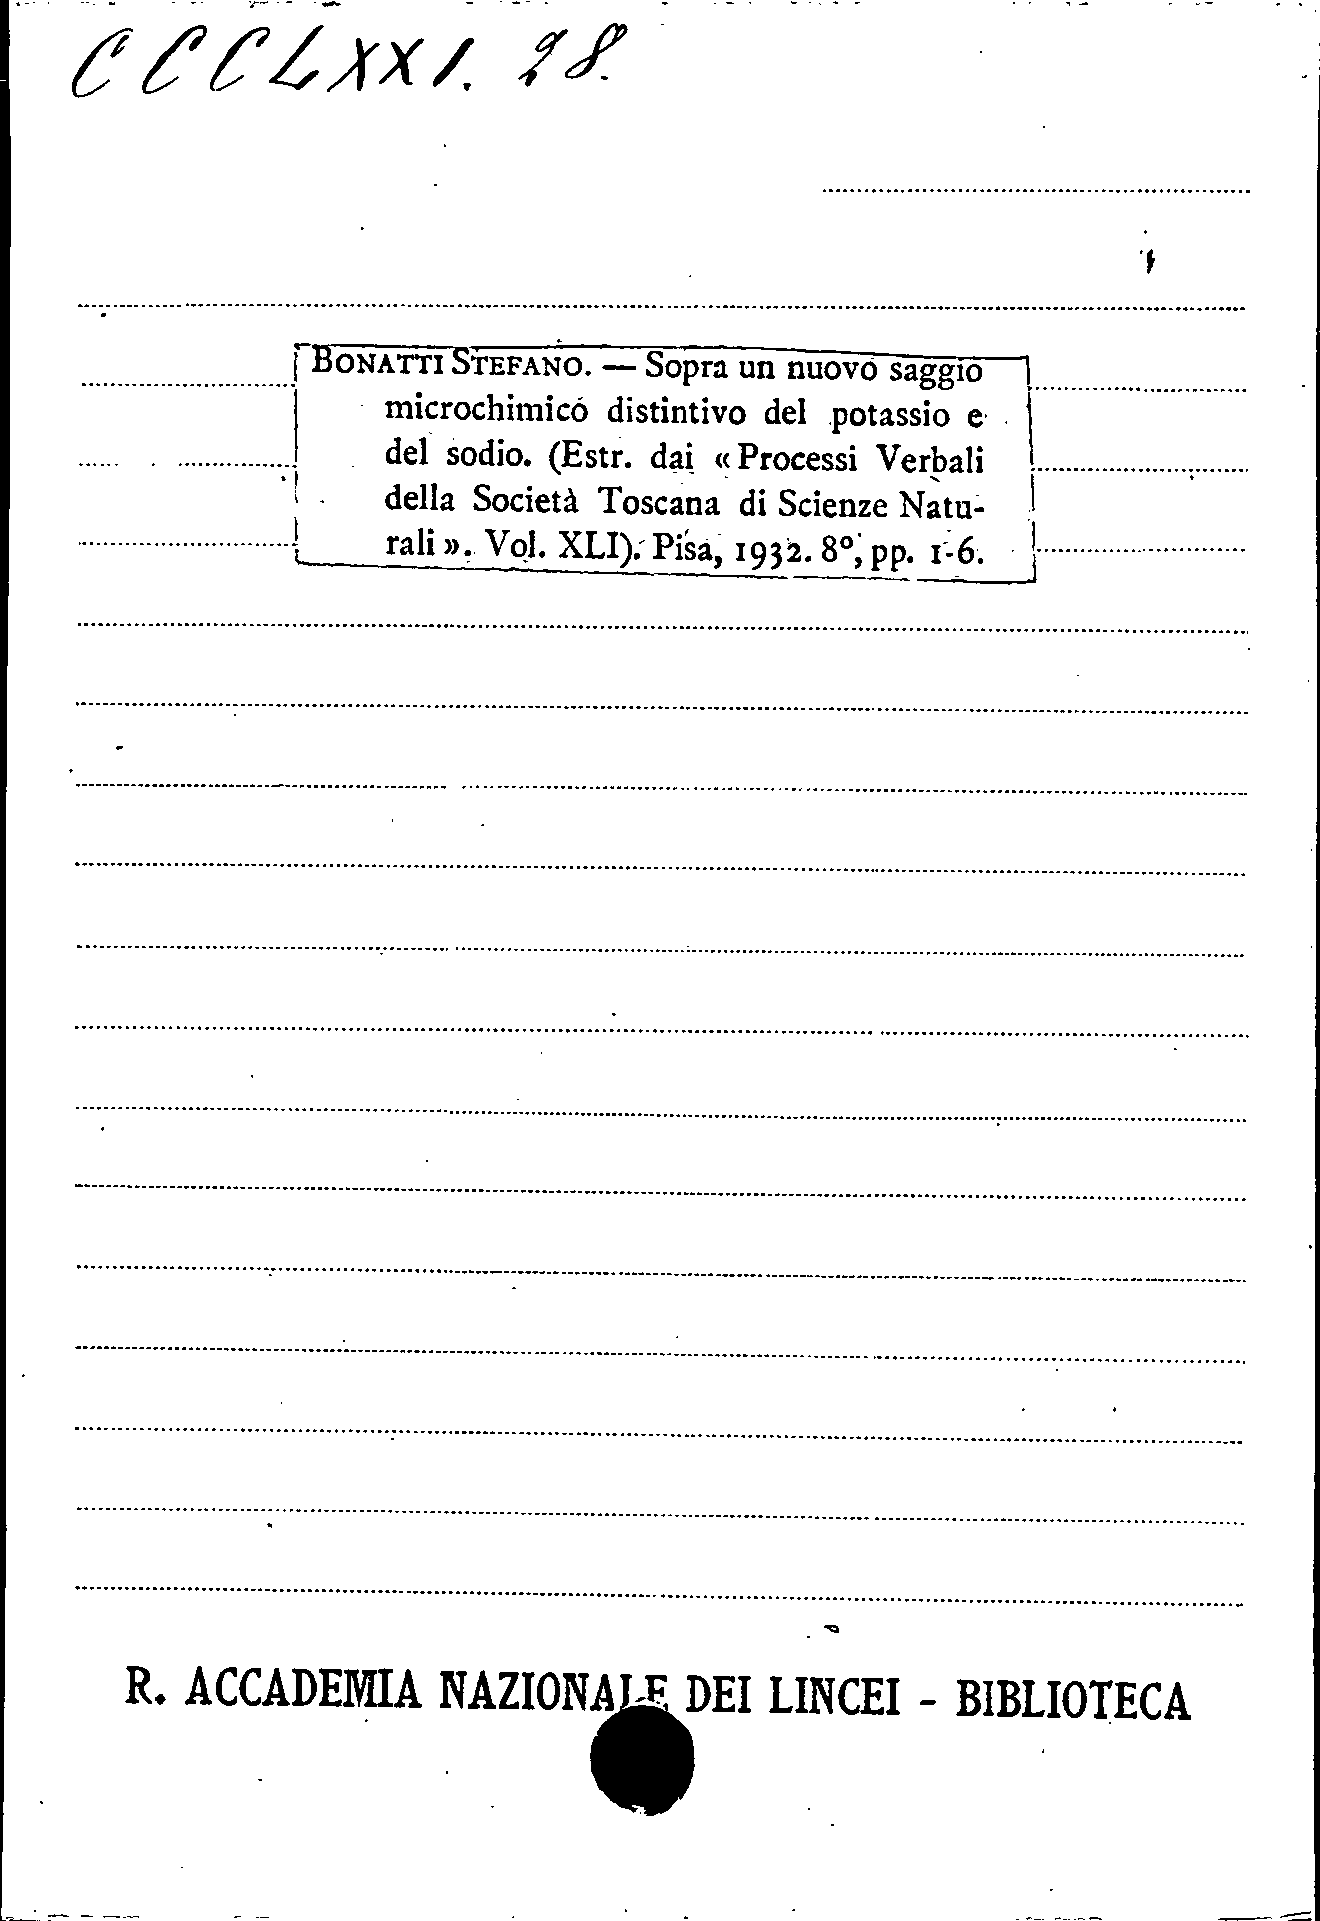 CCCLXXI. 28.
BONATTI STEFANO. — Sopra un nuovo saggio
microchimico distintivo del potassio e
del sodio. (Estr. dai « Processi Verbali
della Società Toscana di Scienze Natu-
rali ». Vol. XLI). Pisa, 1932. 8º, pp. 1-6.
R. ACCADEMIA NAZIONALE DEI LINCEI - BIBLIOTECA